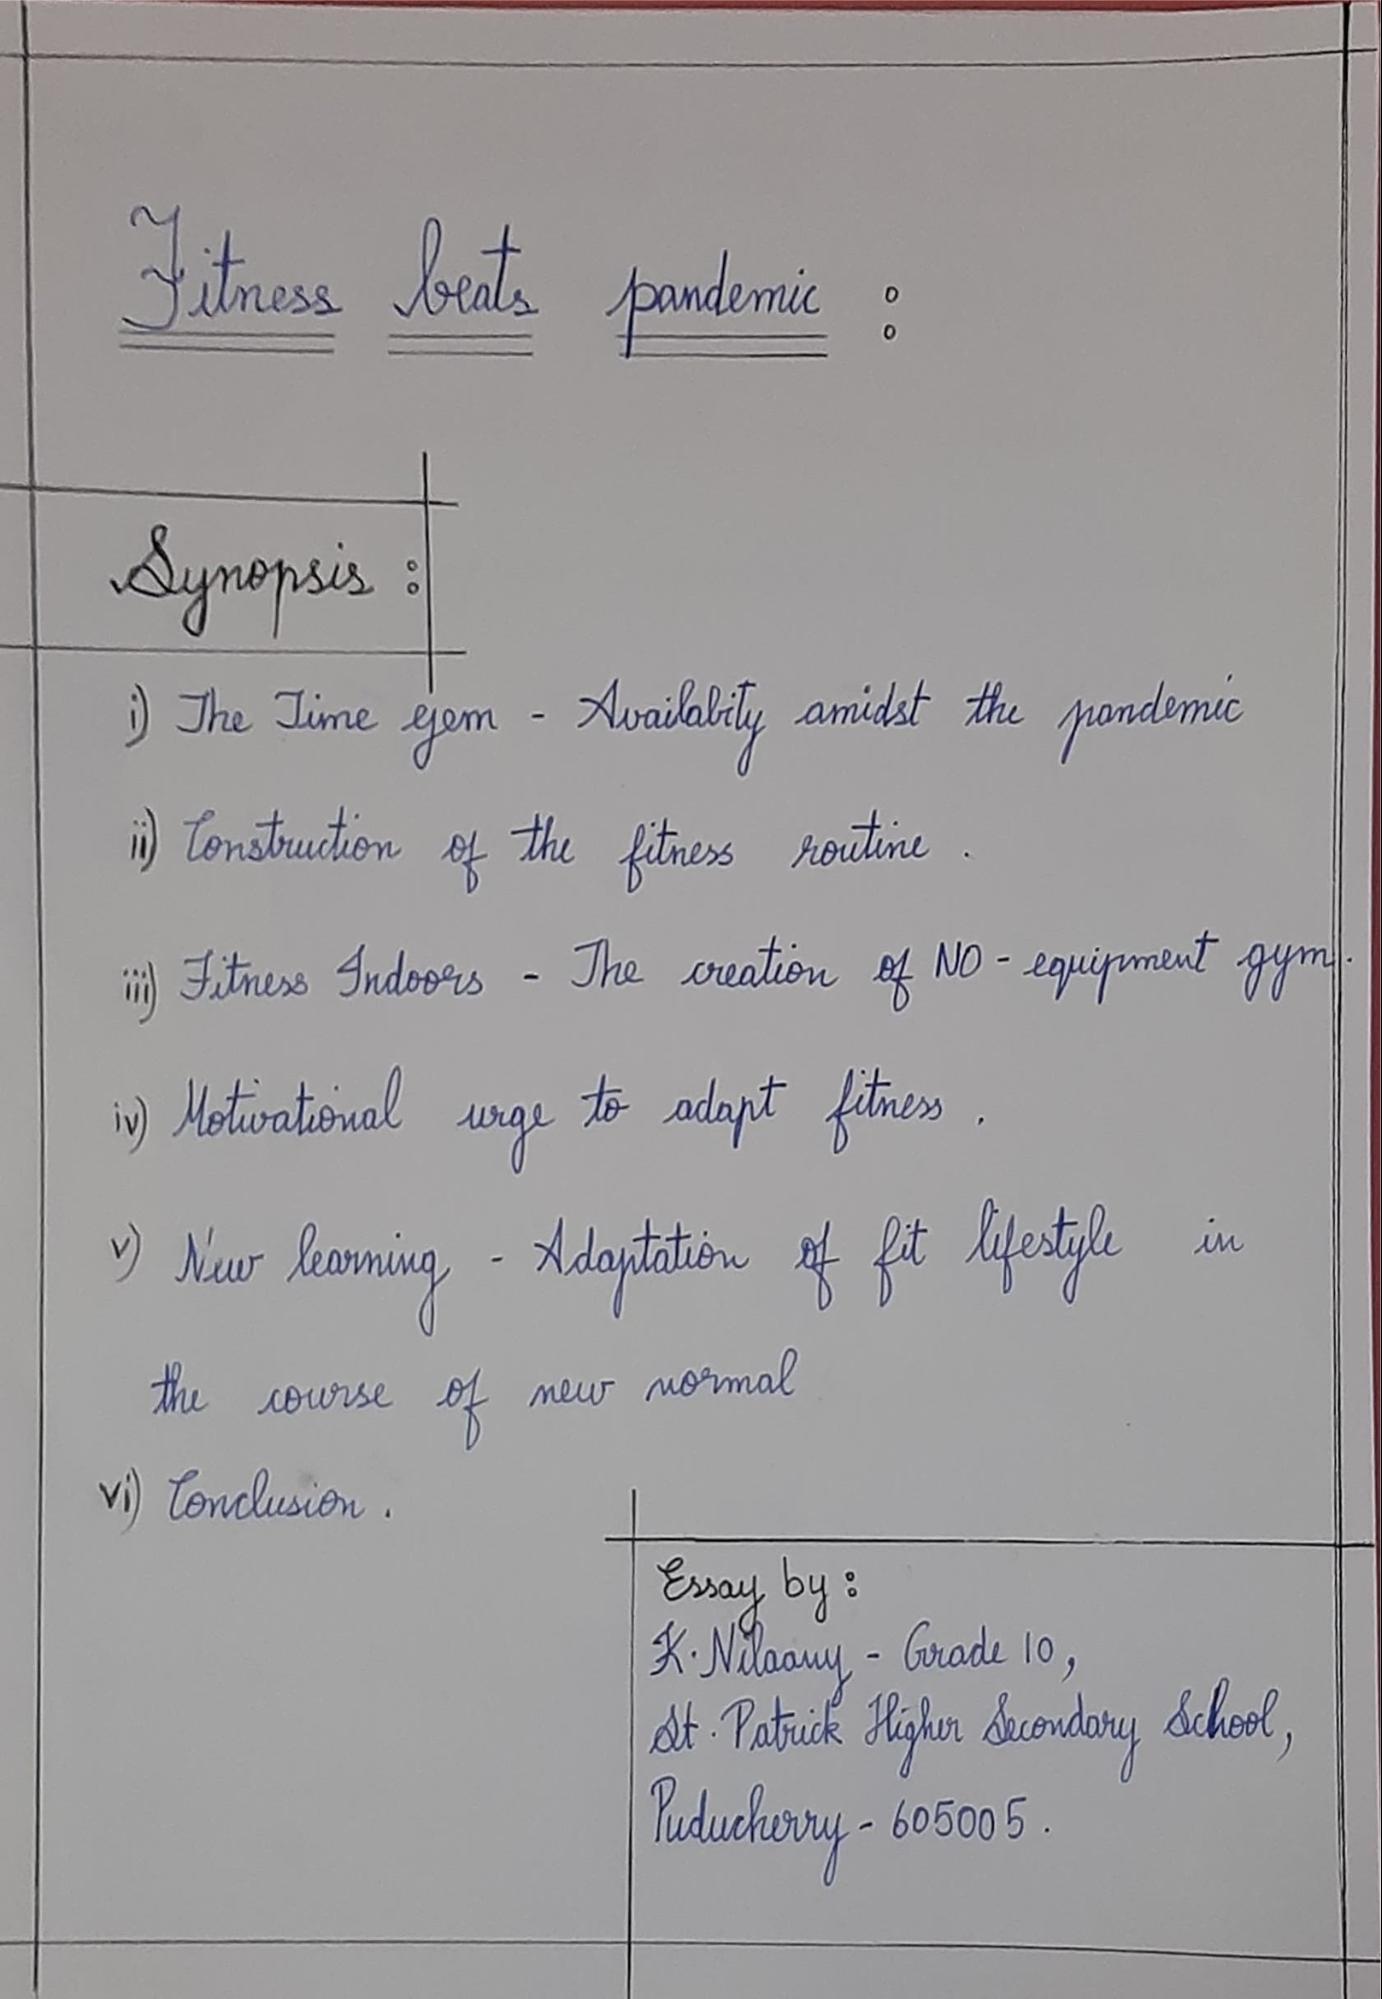 Fitness beats pandemic :
Synopsis :
i) The Time gem - Availabity amidst the pandemic
ii) Construction of the fitness routine .
iii) Fitness Indoors - The creation of NO - equipment gym .
iv) Motivational urge to adapt fitness .
v) New learning - Adaptation of fit lifestyle in
the course of new normal
vi) Conclusion .
Essay by :
K. Nilaany - Grade 10,
St. Patrick Higher Secondary School,
Puducherry - 605005 .